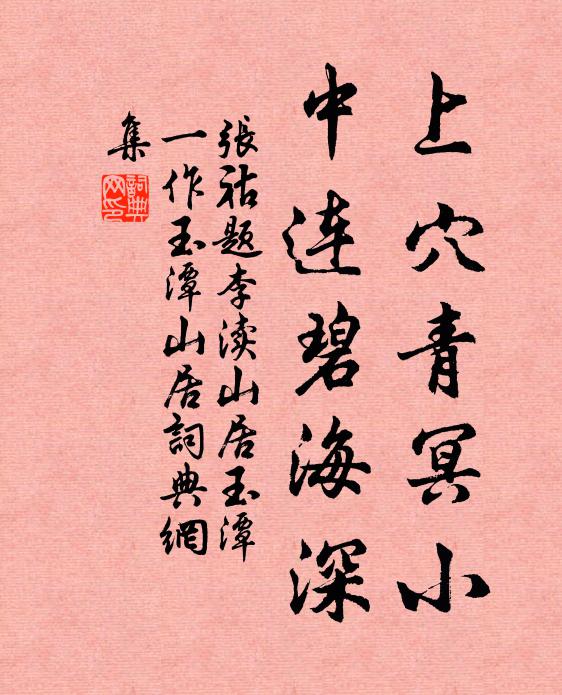 上穴青冥小
中连碧海深
張祜题李渎山居玉潭
一作玉潭山居詞典網
集
詞典
网印